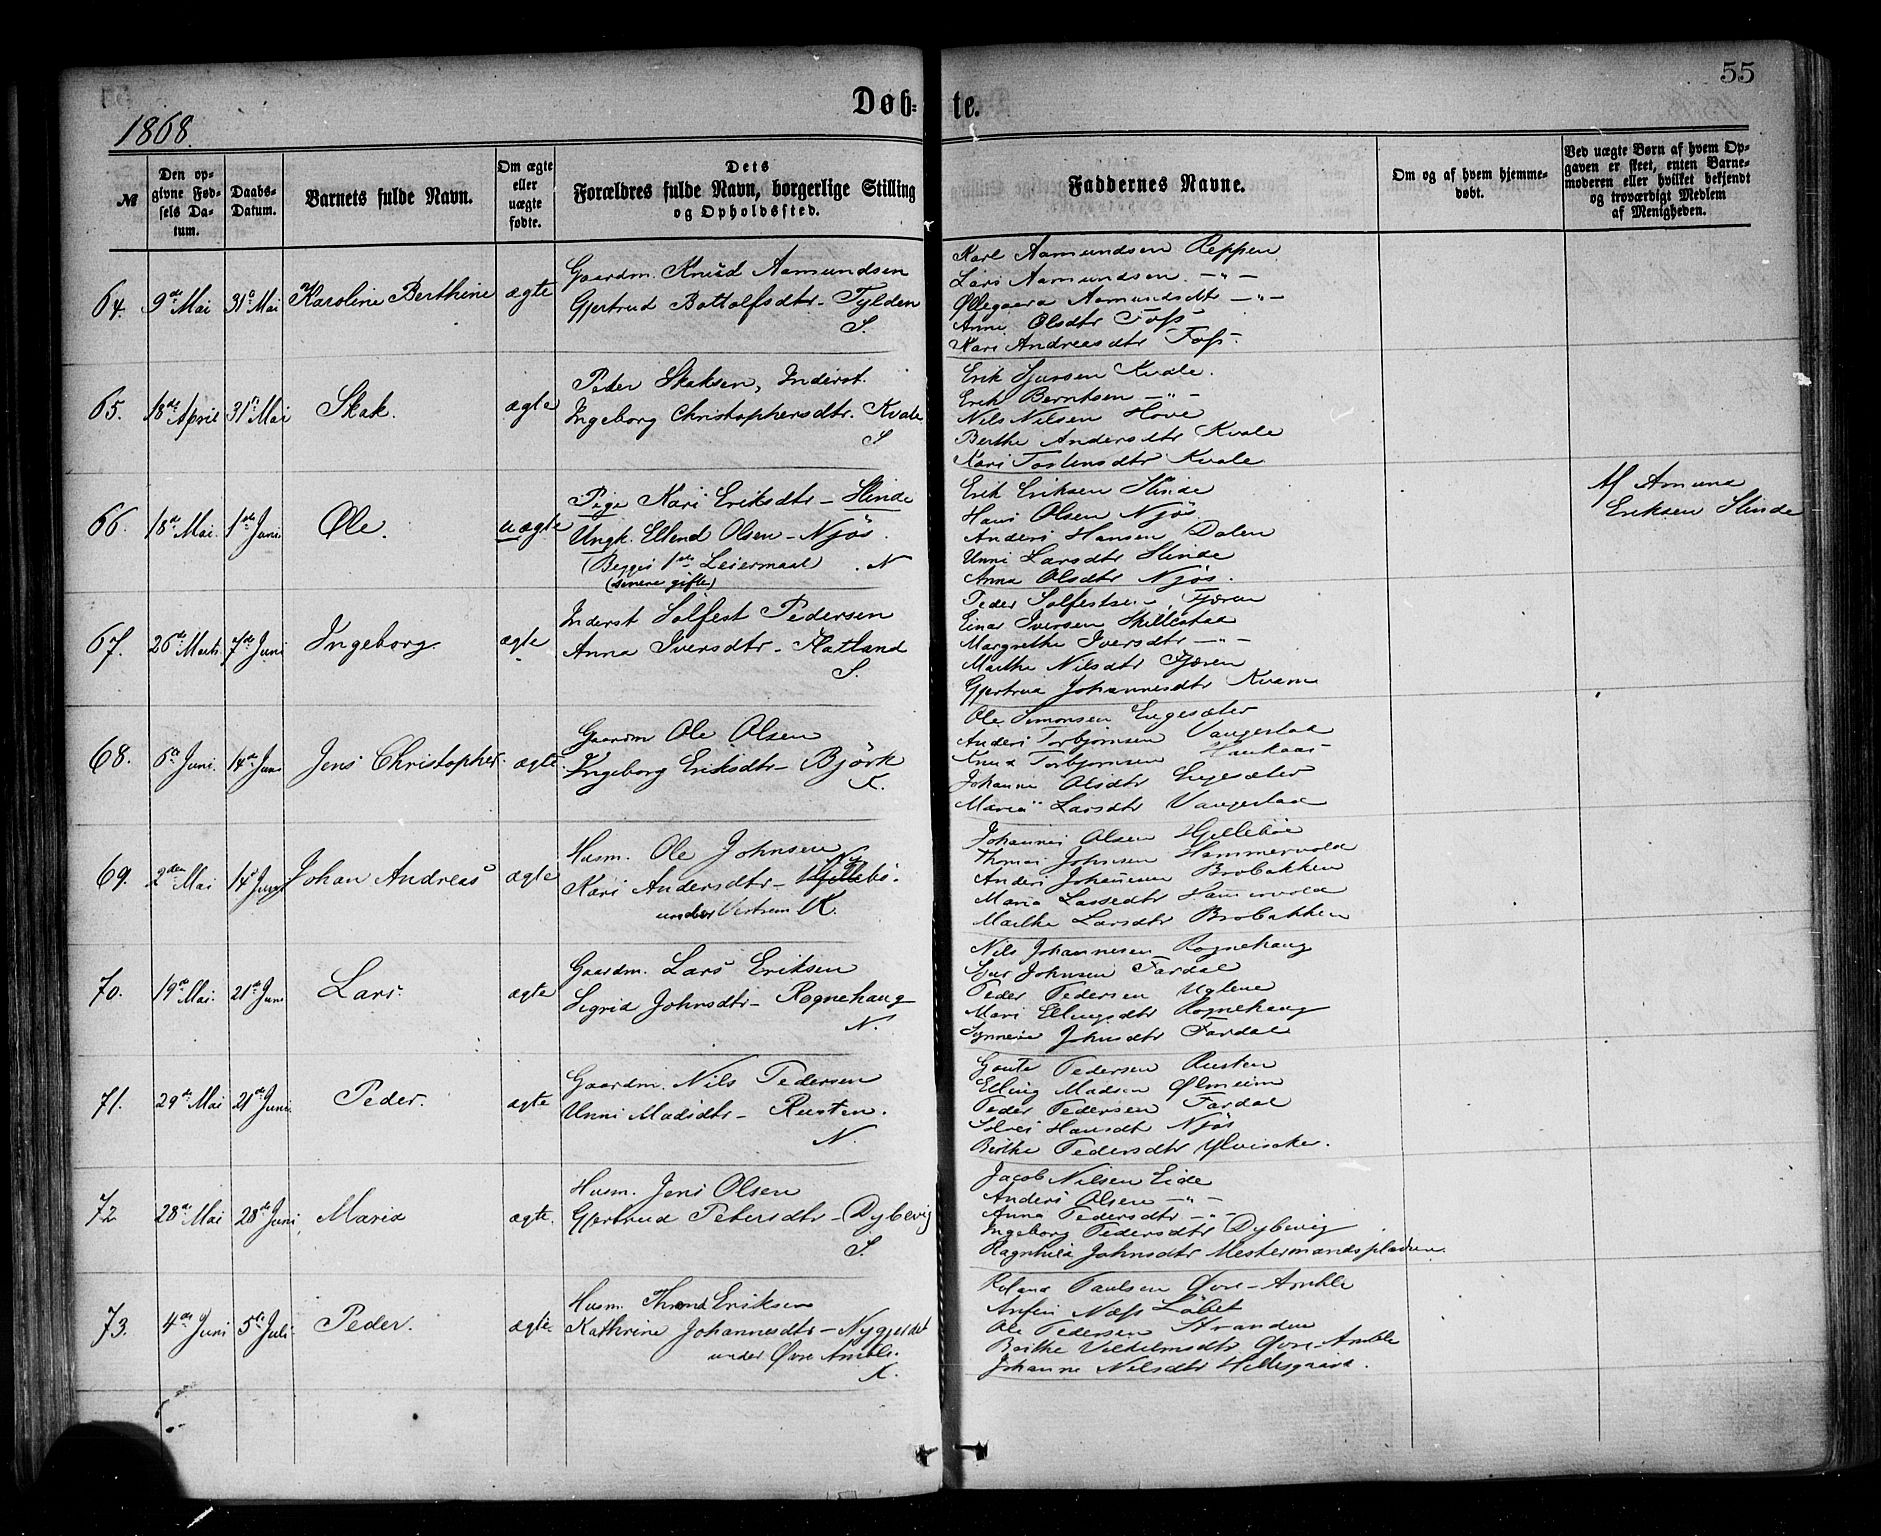 55
Døb- te.
1868.
№
Den opgivne Fødsels Datum.
Daabs-Datum.
Barnets fulde Navn.
Om ægte eller uægte fødte.
Dets Forældres fulde Navn, borgerlige Stilling og Opholdssted.
Faddernes Navne.
Om og af hvem hjemmedøbt.
Ved uægte Børn af hvem Opgaven er skeet, enten Barnemoderen eller hvilket bekjendt og troværdigt Medlem af Menigheden.
64. 9de Mai 31te Mai Karoline Berthine ægte
Gaardm. Knud Aamundsen
Gjertrud Bottolfsdtr - Tylden
S.
Karl Aamundsen Reppen
Lars Aamundsen -"-
Øllegaara Aamundsdtr -"-
Anna Olsdtr Foss
Kari Andreasdtr Foss.
65. 18de April 31te Mai Skak. ægte
Peder Skaksen, Inderst.
Ingeborg Christophersdtr. Kvale
S
Erik Sjursen Kvale.
Erik Berntsen -"-
Nils Nilsen Hove
Berthe Andersdtr Kvale
Kari Tostensdtr Kvale
66. 18de Mai. 1ste Juni Ole. uægte
Pige Kari Eriksdtr - Slinde
Ungk. Ellend Olsen - Njøs.
(Begges 1ste Leiermaal) . N
(senere gifte)
Erik Eriksen Slinde
Hans Olsen Njøs
Anders Hansen Dalen
Unni Larsdtr Slinde
Anna Olsdtr Njøs.
Af Amund
Eriksen Slinde
67. 26de Marts 7de Juni Ingeborg. ægte
Inderst Solfest Pedersen
Anna Iversdtr - Flatland
S.
Peder Solfestsen Fjæren
Einar Iversen Skillestad
Margrethe Iversdtr -"-
Marthe Nilsdtr Fjæren
Gjertrud Johannesdtr Kvam
68. 6te Juni. 14de Juni Jens Christopher. ægte.
Gaardm Ole Olsen
Ingeborg Eriksdtr - Björk
K.
Ole Simonsen Engesæter
Anders Torbjørnsen Vangestad
Knud Torbjørnsen Haukaas
Johanne Olsdtr Engesæter
Maria Larsdtr Vangestad
69. 2den Mai 14de Juni Johan Andreas ægte
Husm. Ole Johnsen
Kari Andersdtr - Hjellebö.
under K.
Johannes Olsen Hjelleböe
Thomas Johnsen Hammervold
Anders Johannesen Brobakken
Maria Lassedtr Hammervold
Marthe Larsdtr Brobakken
70. 19de Mai. 21de Juni Lars. ægte
Gaardm. Lars Eriksen
Sigrid Johnsdtr - Rognehaug
N.
Nils Johannesen Rognehaug
Sjur Johnsen Fardal
Peder Pedersen Uglene
Mari Ellingsdtr Rognehaug
Synneve Johnsdtr Fardal
71. 29de Mai 21de Juni. Peder. ægte
Gaardm. Nils Pedersen
Unni Madsdtr - Rusten.
N.
Goute Pedersen Rusten
Elling Madsen Ølmeim
Peder Pedersen Fardal
Solvei Hansdtr Njøs
Brithe Pedersdtr Ylvisaker.
72 28de Mai 28de Juni, Maria ægte.
Husm. Jens Olsen
Gjertrud Petersdtr - Dybevig
S.
Jacob Nilsen Eide
Anders Olsen -"-
Anna Pedersdtr -"-
Ingeborg Pedersdtr Dybevig
Ragnhild Johnsdtr Mestermandspladsen.
73. 4de Juni 5te Juli Peder. ægte.
Husm. Thrond Eriksen
Kathrine Johannesdtr - Nygjerdet
under Øvre Amble.
K.
Roland Paulsen Øvre-Amble
Anfin Næss Løbet
Ole Pedersen Stranden
Brithe Vilhelmsdtr Øvre-Amble
Johanne Nilsdtr .